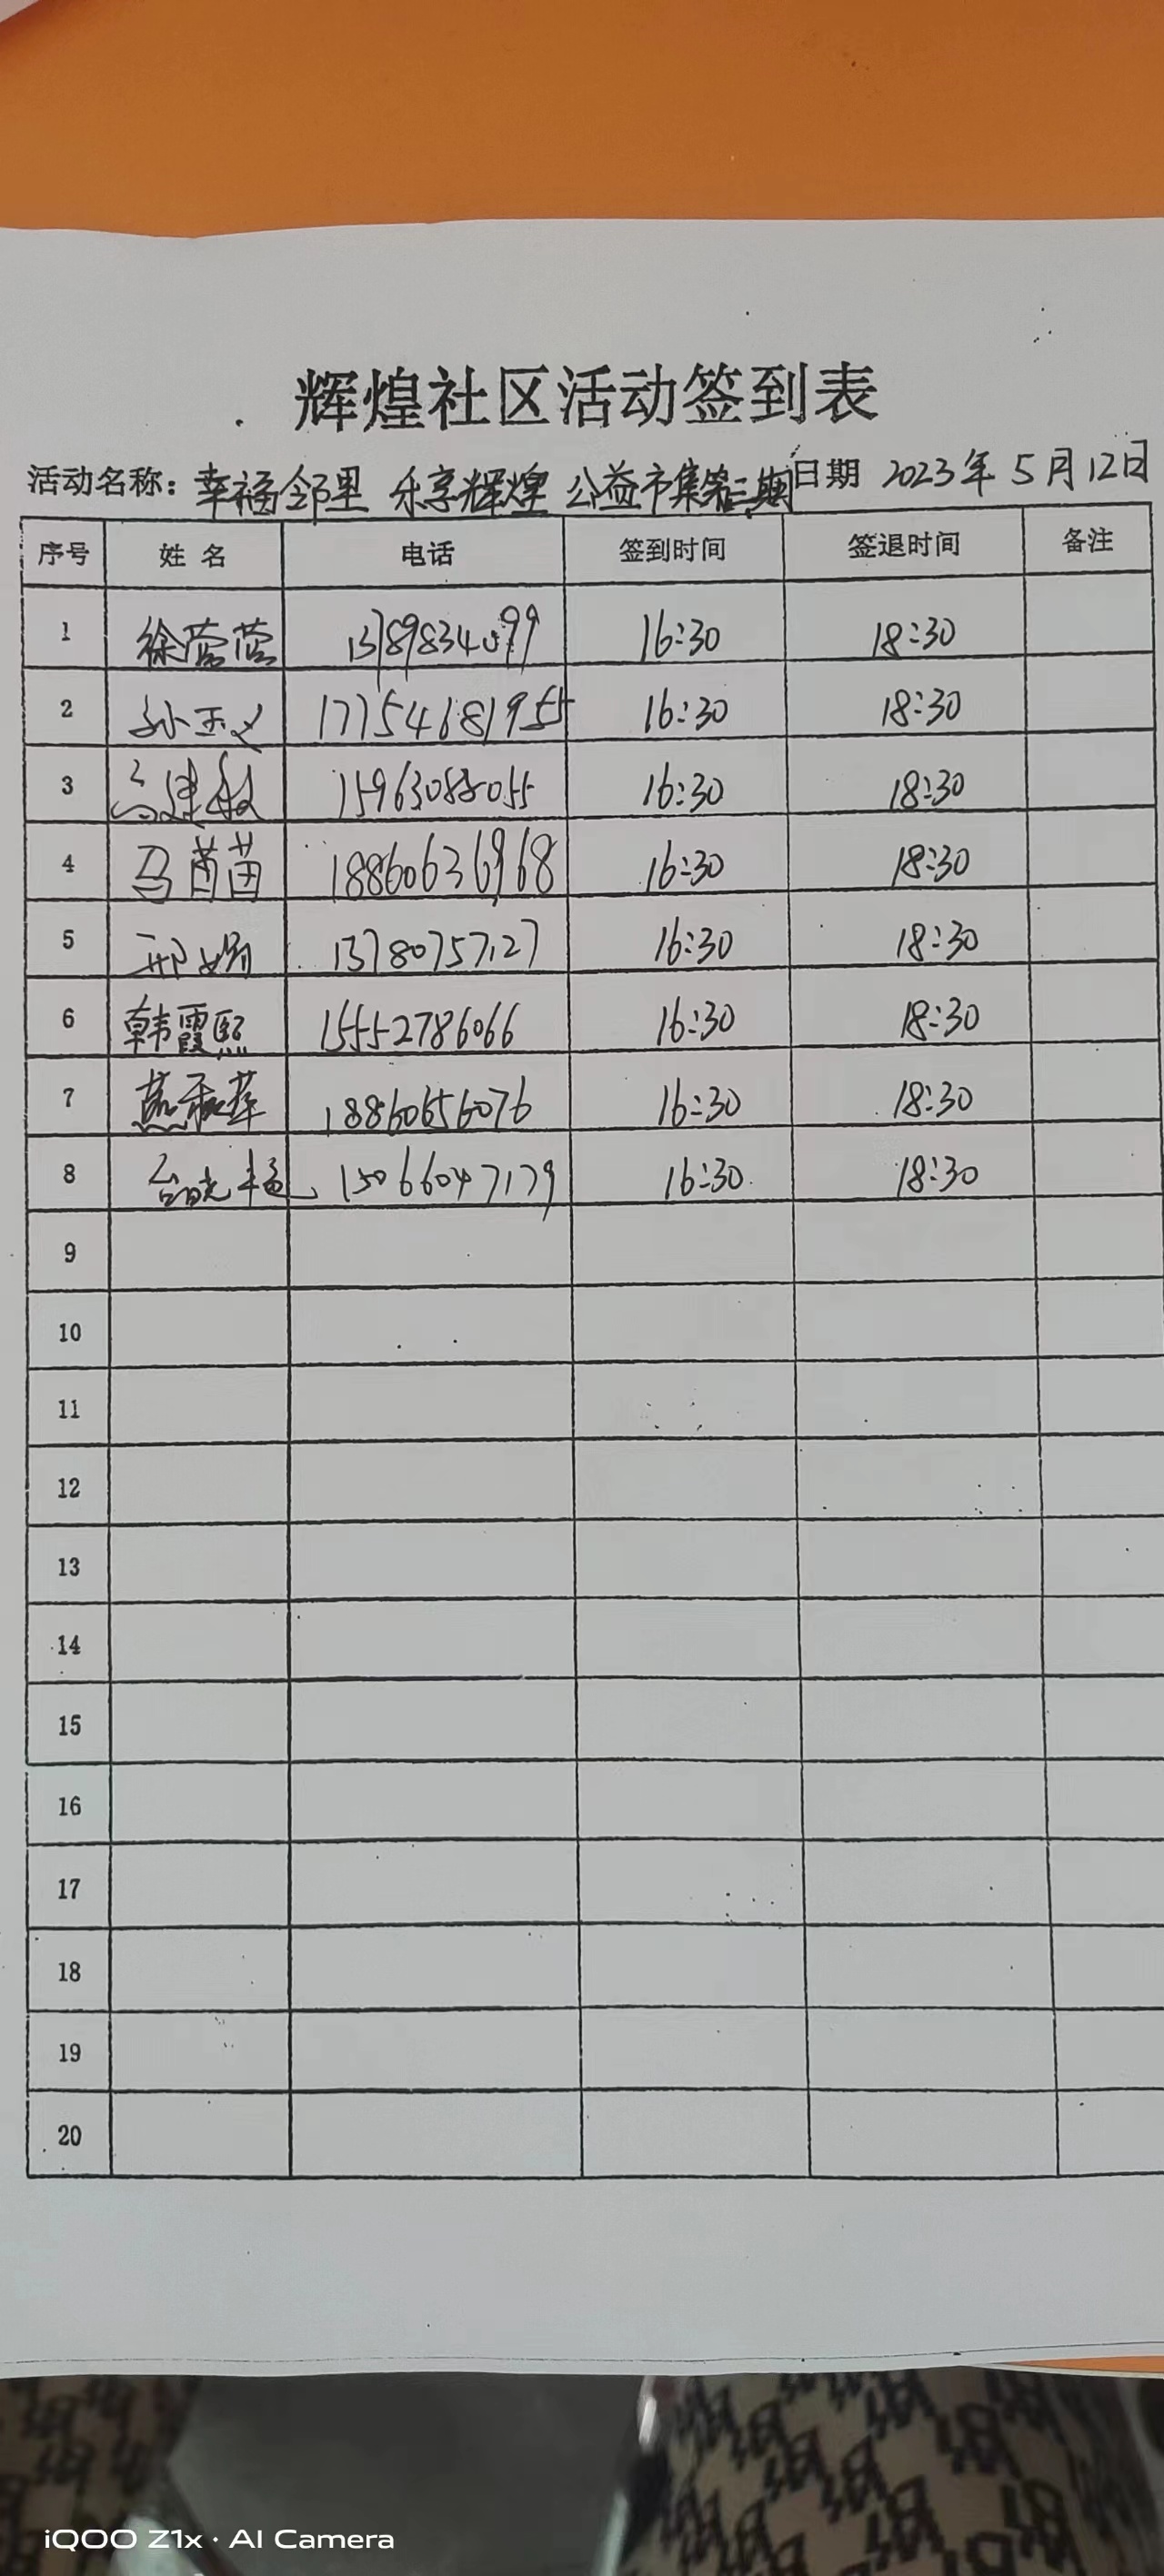 辉煌社区活动签到表
活动名称：幸福邻里 乐享辉煌 公益市集第三期 日期 2023年5月12日
序号 姓名 电话 签到时间 签退时间 备注
1 徐营营 13789834099 16:30 18:30
2 孙玉文 17754681955 16:30 18:30
3 高建敏 15963088055 16:30 18:30
4 马茵苗 18860636968 16:30 18:30
5 邢娟 13780757127 16:30 18:30
6 韩霞熙 15552786066 16:30 18:30
7 燕 18860656076 16:30 18:30
8 15066047179 16:30 18:30
9
10
11
12
13
14
15
16
17
18
19
20
iQOO Z1x · AI Camera